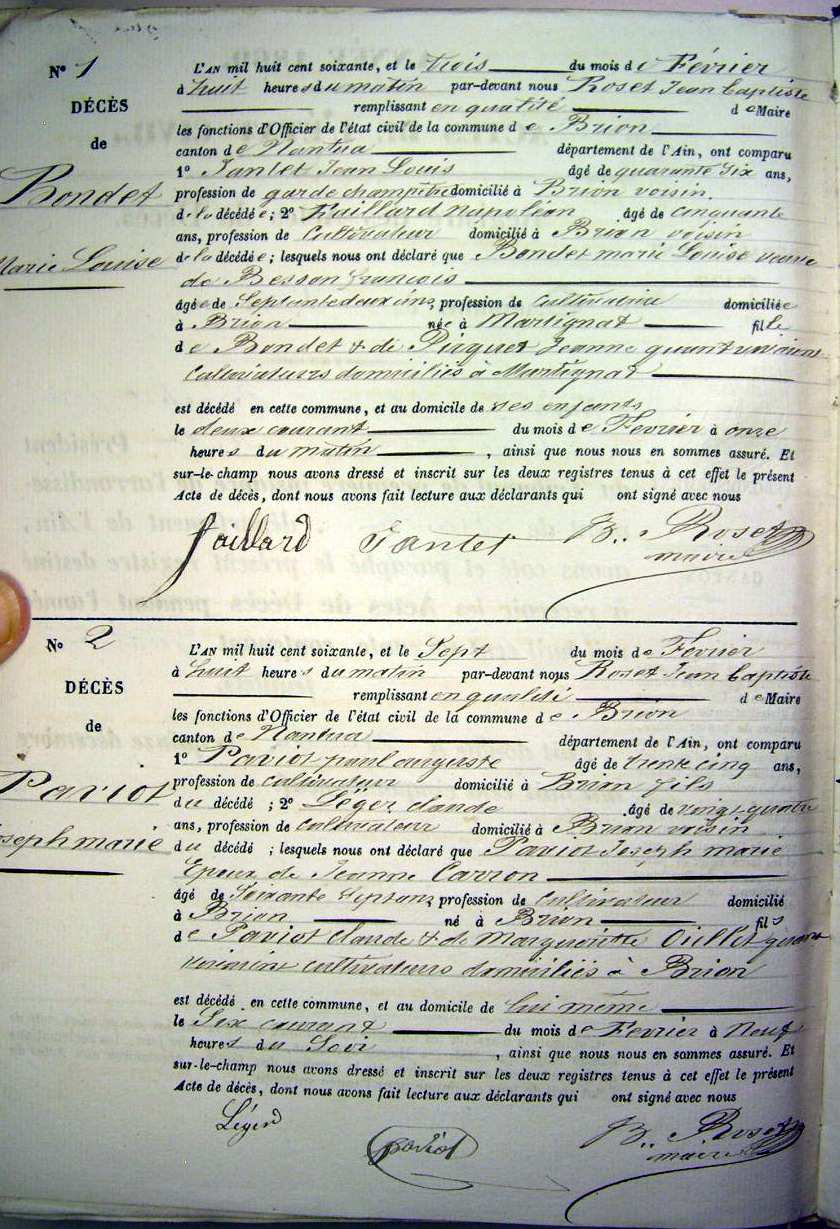 N° 1
DÉCÈS
de
Bondet
Marie Louise
L'AN mil huit cent soixante, et le trois du mois de Février
à huit heures du matin par-devant nous Roset Jean baptiste
remplissant en qualité de Maire
les fonctions d'Officier de l'état civil de la commune de Brion
canton de Nantua département de l'Ain, ont comparu
1° Jantet Jean Louis âgé de quarante six ans,
profession de garde champêtre domicilié à Brion voisin
de la décédée; 2° Faillard Napoléon âgé de cinquante
ans, profession de Cultivateur domicilié à Brion voisin
de la décédée; lesquels nous ont déclaré que Bondet marie Louise veuve
de Besson françois
âgée de Septante deux ans, profession de Cultivatrice domiciliée
à Brion née à Martignat fille
de Bondet & de Piquet Jeanne quant vivaient
Cultivateurs domiciliés à Martignat
est décédé en cette commune, et au domicile de ses enfants
le deux courant du mois de Février à onze
heures du matin, ainsi que nous nous en sommes assuré. Et
sur-le-champ nous avons dressé et inscrit sur les deux registres tenus à cet effet le présent
Acte de décès, dont nous avons fait lecture aux déclarants qui ont signé avec nous
faillard Jantet B.. Roset
maire
N° 2
DÉCÈS
de
Pariot
Joseph marie
L'AN mil huit cent soixante, et le Sept du mois de Février
à huit heures du matin par-devant nous Roset Jean baptiste
remplissant en qualité de Maire
les fonctions d'Officier de l'état civil de la commune de Brion
canton de Nantua département de l'Ain, ont comparu
1° Pariot paul auguste âgé de trente cinq ans,
profession de cultivateur domicilié à Brion fils
du décédé; 2° Léger claude âgé de vingt quatre
ans, profession de Cultivateur domicilié à Brion voisin
du décédé; lesquels nous ont déclaré que Pariot Joseph marie
Epoux de Jeanne Carron
âgé de Soixante Sept ans, profession de Cultivateur domicilié
à Brion né à Brion fils
de Pariot claude & de Marguerite Oüillet quant
vivaient cultivateurs domiciliés à Brion
est décédé en cette commune, et au domicile de lui même
le Six courant du mois de Février à Neuf
heures du Soir, ainsi que nous nous en sommes assuré. Et
sur-le-champ nous avons dressé et inscrit sur les deux registres tenus à cet effet le présent
Acte de décès, dont nous avons fait lecture aux déclarants qui ont signé avec nous
Léger pariot B.. Roset
maire